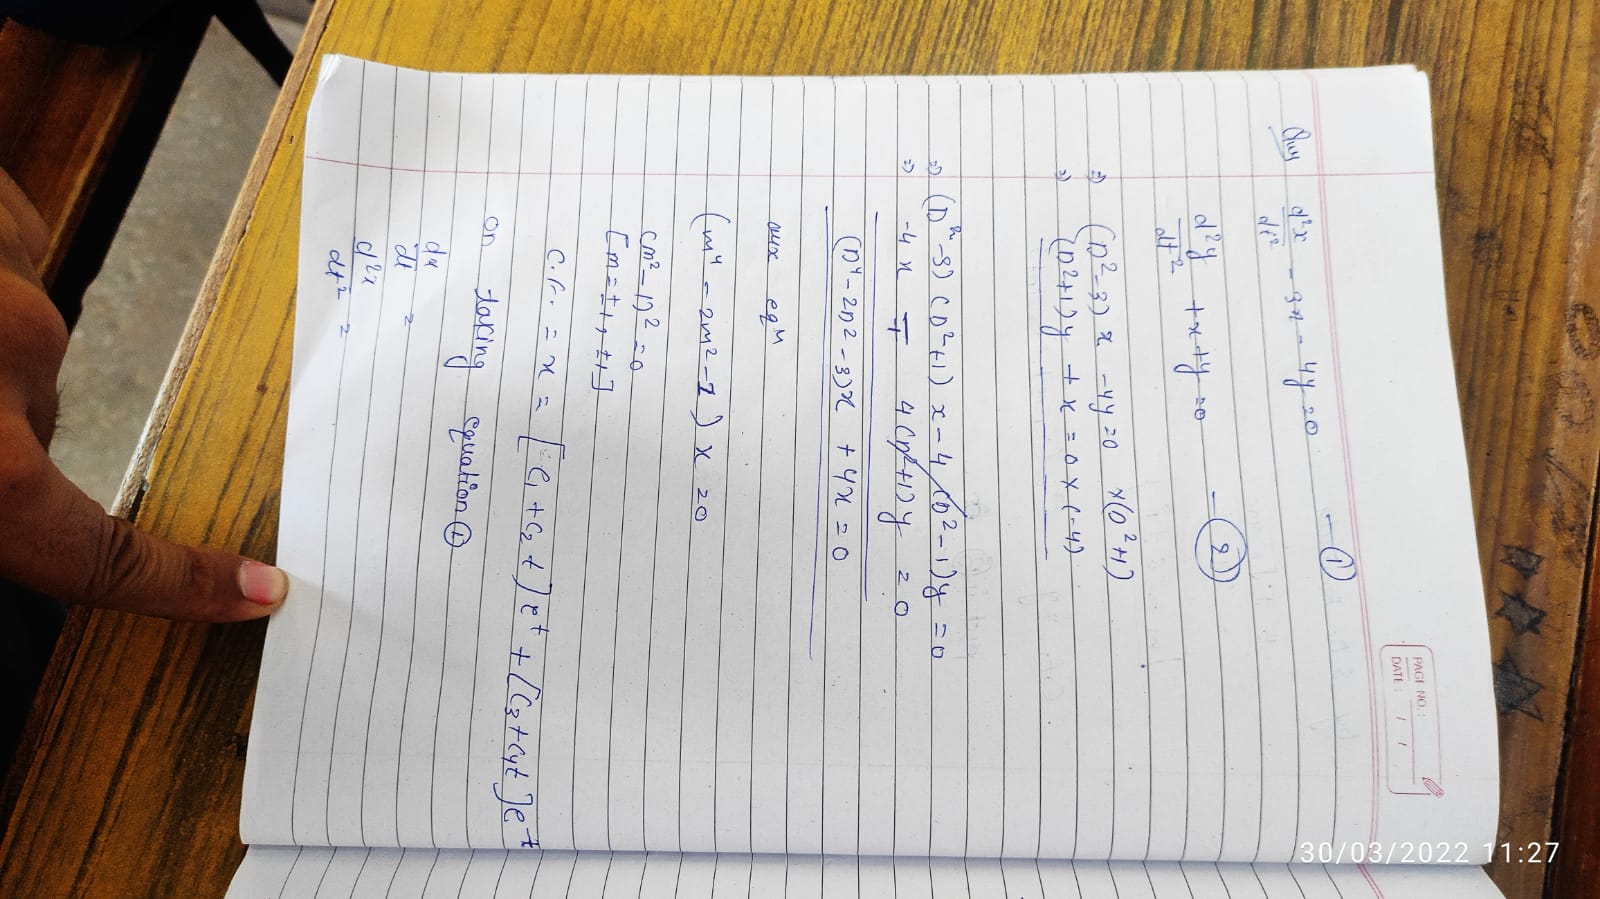 PAGE NO.:
DATE: / /
Ques d²x/dt² - 3x - 4y = 0 - ①
d²y/dt² + x + y = 0 - ②
⇒ (D² - 3) x - 4y = 0 ×(D²+1)
⇒ (D²+1)y + x = 0 × (-4)
⇒ (D² - 3) (D²+1) x - 4 (D² - 1)y = 0
⇒ -4x ∓ 4(D²+1)y = 0
(D⁴ - 2D² - 3)x + 4x = 0
aux eqⁿ
(m⁴ - 2m² - 1) x = 0
(m² - 1)² = 0
[m = ±1, ±1]
C.F. = x = [C₁ + C₂ t] eᵗ + [C₃ + C₄t] e⁻ᵗ
on taking equation ①
dx/dt =
d²x/dt² =
30/03/2022 11:27